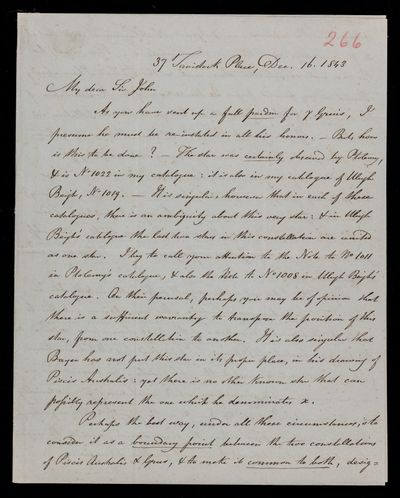 266
37 Tavistock Place, Dec. 16. 1843
My dear Sir John
As you have sent up a full pardon for γ Gruis, I
presume he must be reinstated in all his honors. – But, how
is this to be done? – The star was certainly observed by Ptolemy,
& is No 1022 in my catalogue: it is also in my catalogue of Ulugh
Beigh, No 1019. – It is singular, however that in each of these
catalogues, there is an ambiguity about this very star: & in Ulugh
Beigh's catalogue the last two stars in this constellation are united
as one star. I beg to call your attention to the Note to No 1011
in Ptolemy's catalogue, & also the Note to No 1008 in Ulugh Beigh's
catalogue. On their perusal, perhaps you may be of opinion that
there is a sufficient warranty to transpose the position of this
star, from one constellation to another. It is also singular that
Bayer has not put this star in its proper place, in his drawing of
Piscis Australis: yet there is no other known star that can
possibly represent the one which he denominates κ.
Perhaps the best way, under all these circumstances, is to
consider it as a boundary point between the two constellations
of Piscis Australis & Grus, & to make it common to both, desig=